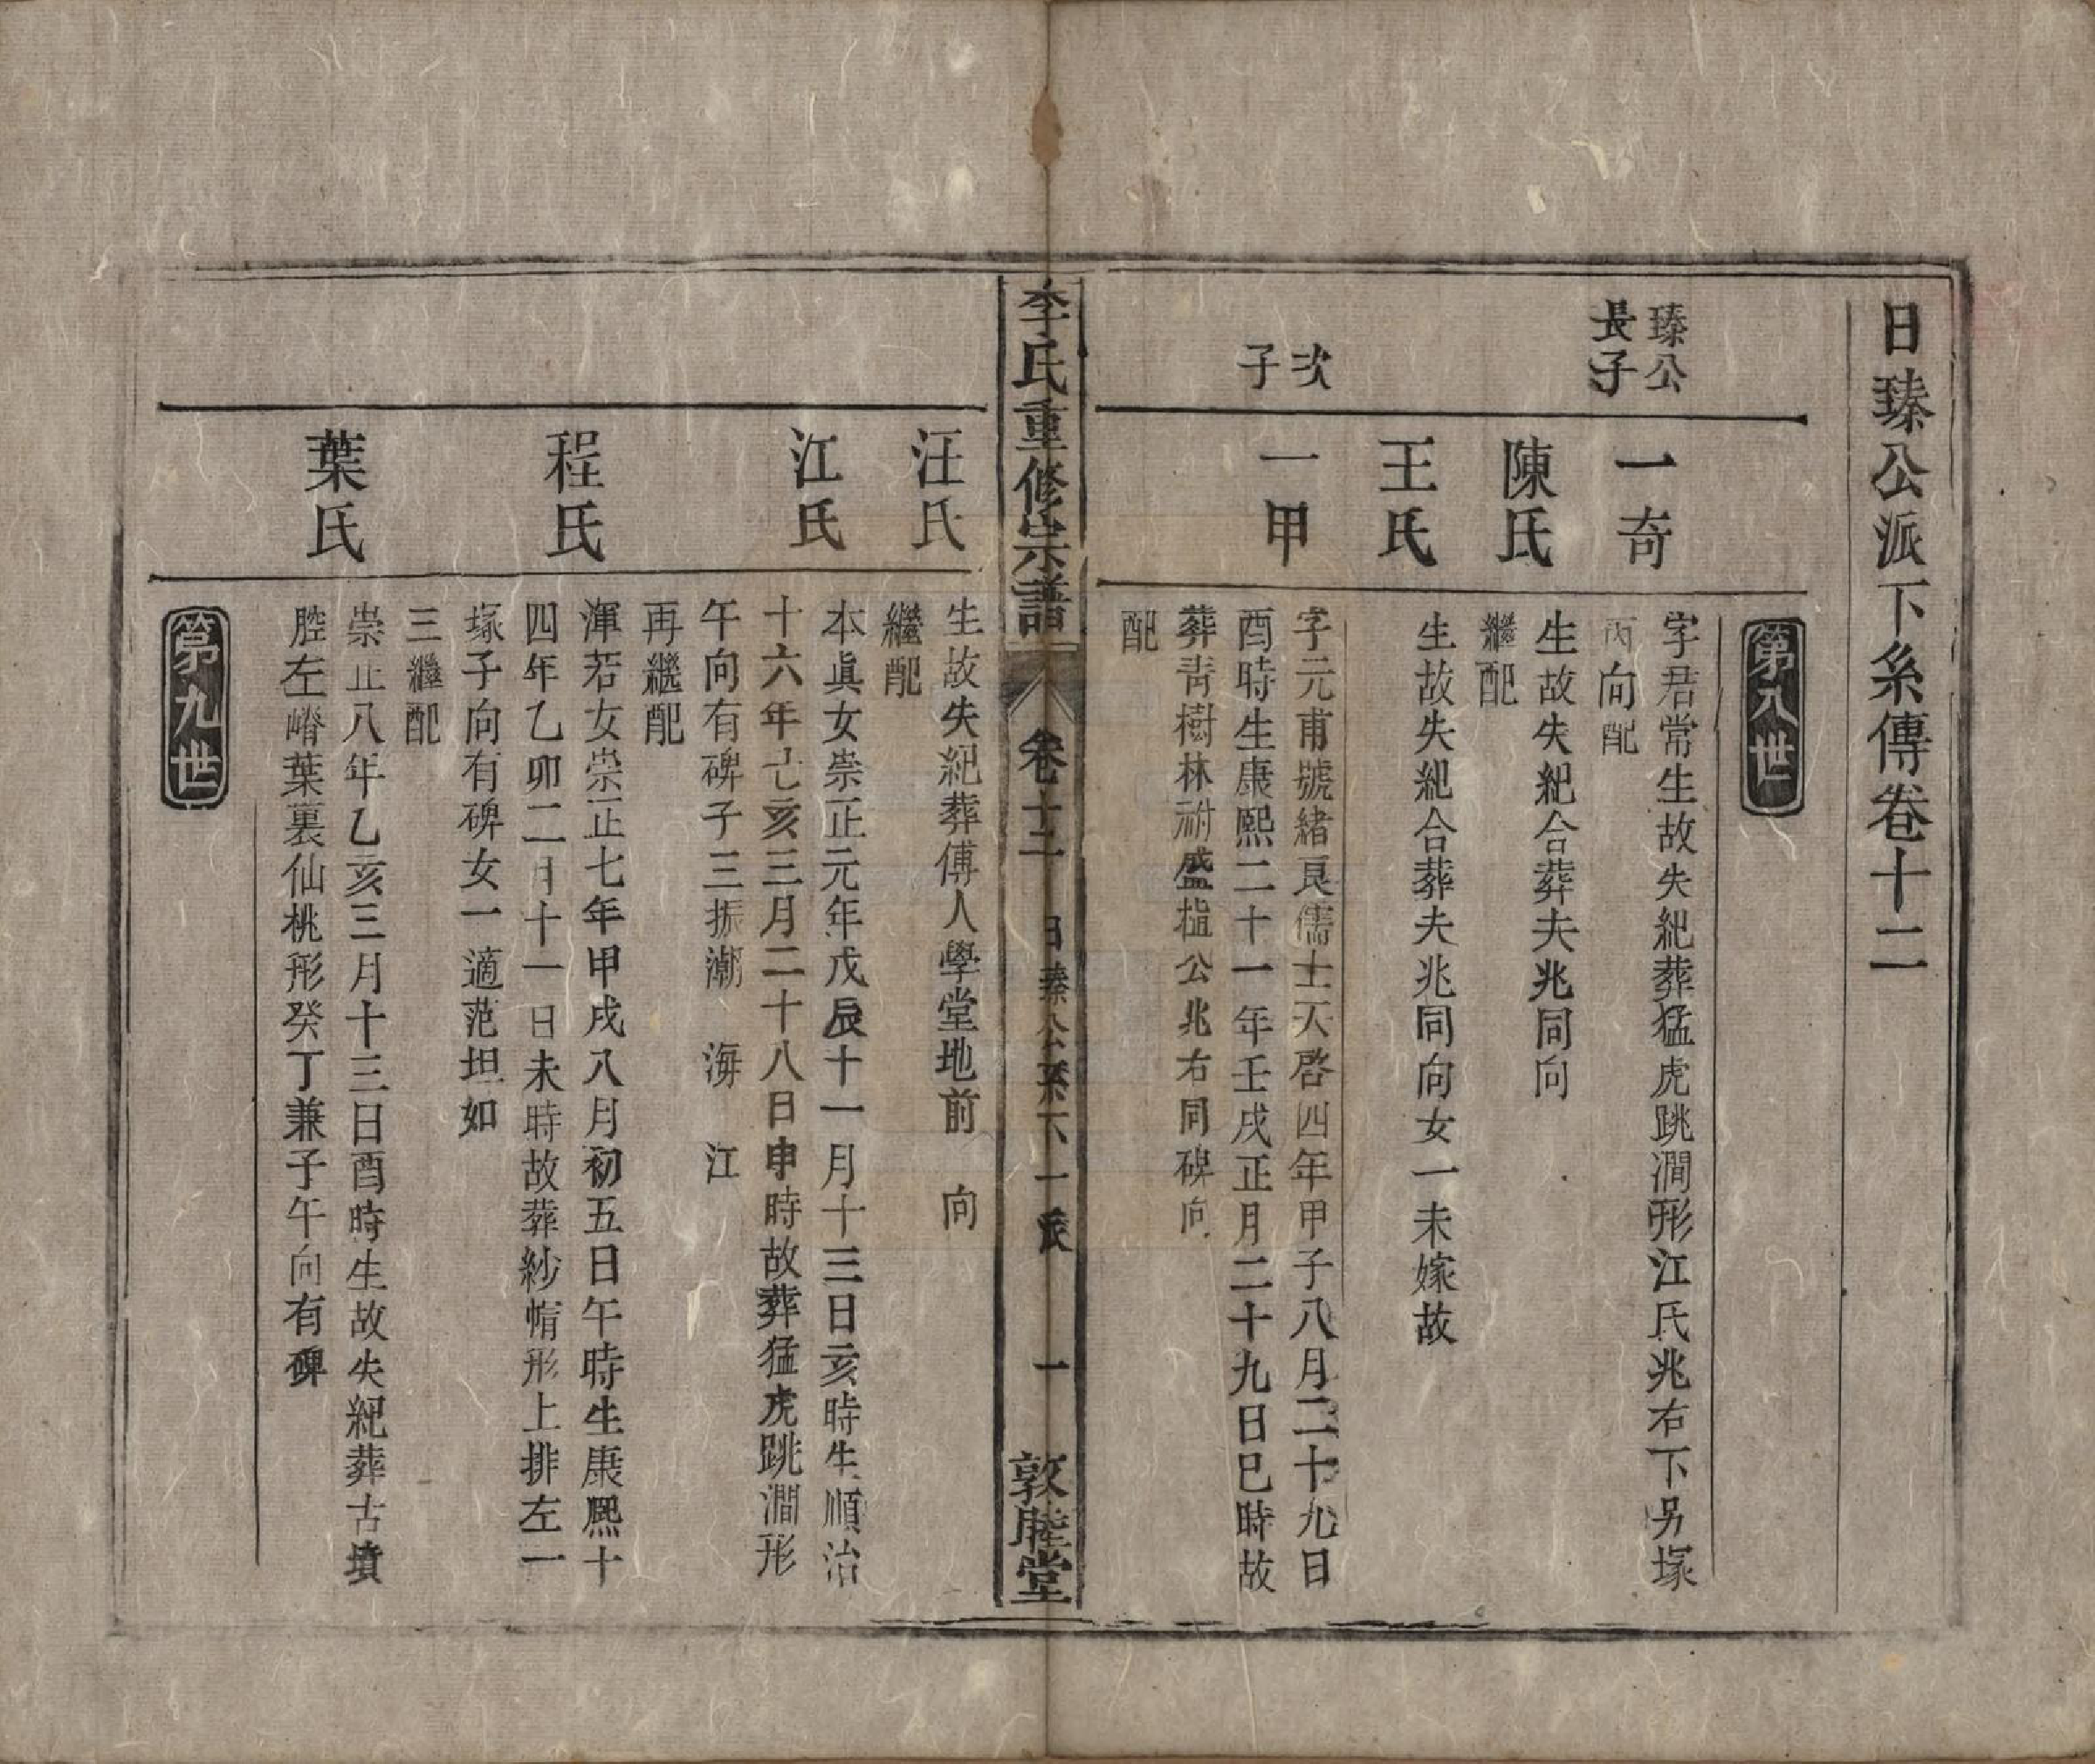 日臻公派下系傳卷十二
第八世
臻公
長子
一奇
字君常生故失紀葬猛虎跳澗形江氏兆右下另塚
丙向配
陳氏
生故失紀合葬夫兆同向
繼配
王氏
生故失紀合葬夫兆同向女一未嫁故
次
子
一甲
字元甫號緒良儒士天啓四年甲子八月二十九日
酉時生康熙二十一年壬戌正月二十九日巳時故
葬青樹林祔盛公兆右同碑向
配
李氏重修宗譜
卷十二
日臻公系下一派
一
敦睦堂
汪氏
生故失紀葬傅人學堂地前 向
繼配
江氏
本眞女崇正元年戊辰十一月十三日亥時生順治
十六年己亥三月二十八日申時故葬猛虎跳澗形
午向有碑子三振潮 海 江
再繼配
程氏
渾若女崇正七年甲戌八月初五日午時生康熙十
四年乙卯二月十一日未時故葬紗帽形上排左一
塚子向有碑女一適范坦如
三繼配
葉氏
崇正八年乙亥三月十三日酉時生故失紀葬古墳
腔左嵴葉裏仙桃形癸丁兼子午向有碑
第九世